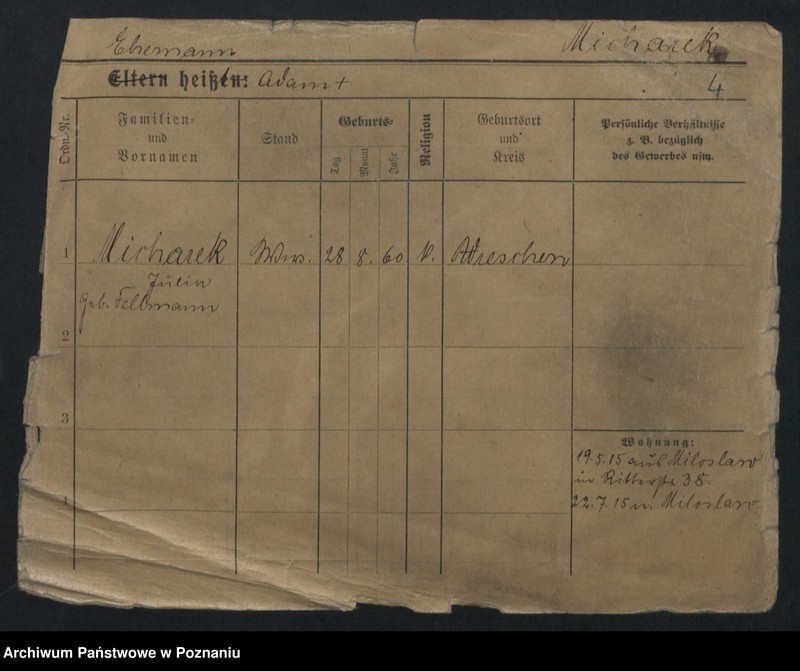 Ehemann Micharek
Eltern heißen: Adam +
4
Ordn.-Nr.
Familien-
und
Vornamen
Stand
Geburts-
Tag
Monat
Jahr
Religion
Geburtsort
und
Kreis
Persönliche Verhältnisse
z. B. bezüglich
des Gewerbes usw.
1 Micharek Wws. 28 8. 60 k. Wreschen
Julia
geb. Fellmann
2
3
Wohnung:
19.5.15 aus Miloslaw
in Ritterstr. 38
22.7.15 n. Miloslaw
Archiwum Państwowe w Poznaniu